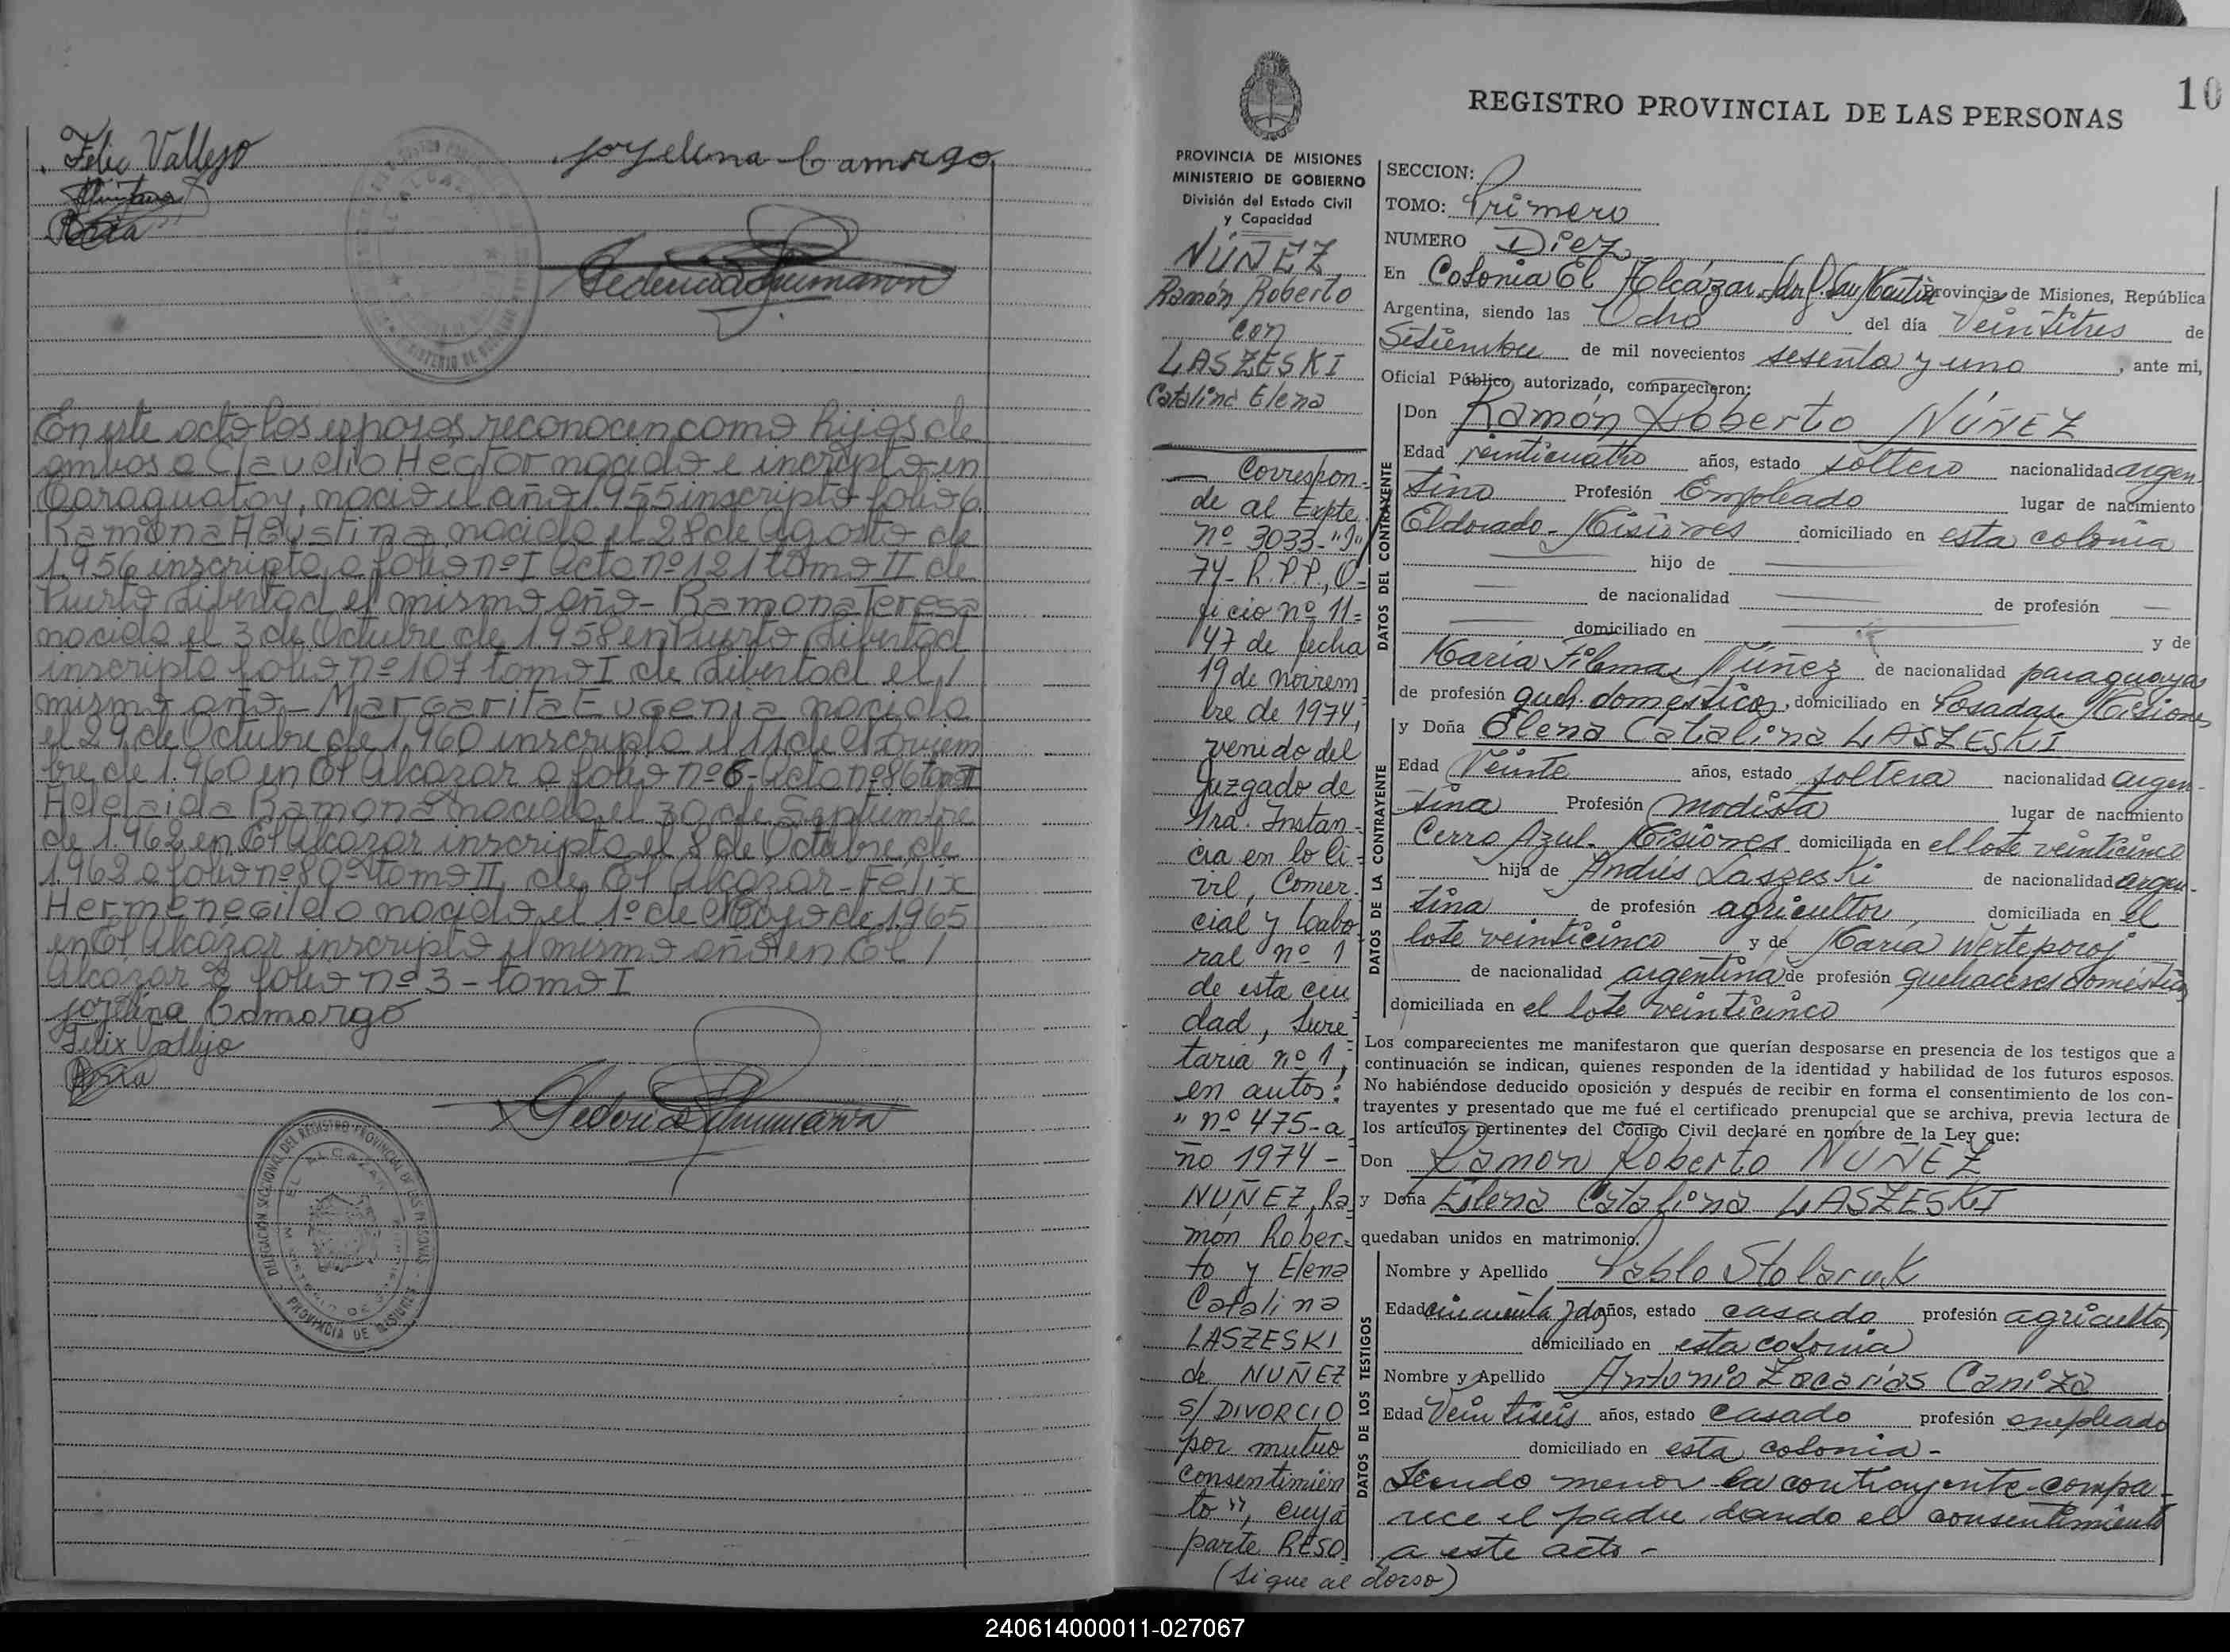 Felix Vallejo
Josefina Camargo
Federico Schumann
En este acto los esposos reconocen como hijos de
ambos a Claudio Héctor nacido e inscripto en
Caraguatay, nacio el año 1.955 inscripto folio 6
Ramona Agustina nacida el 28 de Agosto de
1.956 inscripta a folio nº I Acta nº 121 tomo II de
Puerto Libertad el mismo año - Ramona Teresa
nacida el 3 de Octubre de 1.958 en Puerto Libertad
inscripta folio nº 107 tomo I de Libertad el /
mismo año - Margarita Eugenia nacida
el 29 de Octubre de 1.960 inscripta el 11 de Diciem
bre de 1.960 en El Alcazar a folio nº 6 - Acta nº 86 tomo II
Adelaida Ramona nacida el 30 de Septiembre
de 1.962 en El Alcazar inscripta el 8 de Octubre de
1.962 a folio nº 80 tomo II de El Alcazar - Félix
Hermenegildo nacido el 1º de Mayo de 1.965
en El Alcázar inscripto el mismo año en El /
Alcázar a folio nº 3 - tomo I
Josefina Camargo
Felix Vallejo
Federico Schumann
DELEGACION SECCIONAL DEL REGISTRO PROVINCIAL DE LAS PERSONAS
EL ALCAZAR
PROVINCIA DE MISIONES
10
REGISTRO PROVINCIAL DE LAS PERSONAS
PROVINCIA DE MISIONES
MINISTERIO DE GOBIERNO
División del Estado Civil
y Capacidad
NÚÑEZ
Ramón Roberto
con
LASZESKI
Catalina Elena
Correspon-
de al Expte.
nº 3033-"J"/
74- R.P.P., O-
ficio nº 11-
47 de fecha
19 de noviem
bre de 1974,
venido del
Juzgado de
1ra. Instan-
cia en lo Ci-
vil, Comer-
cial y Labo
ral nº 1
de esta ciu
dad, Secre
taria nº 1,
en autos:
"nº 475-a
ño 1974 -
NUÑEZ, Ra
món Rober-
to y Elena
Catalina
LASZESKI
de NUÑEZ
S/ DIVORCIO
por mutuo
consentimien
to", cuya
parte RESO
(Sigue al dorso)
SECCION:
TOMO: Primero
NUMERO Diez
En Colonia El Alcázar, Provincia de Misiones, República
Argentina, siendo las Ocho del día Veintitres de
Setiembre de mil novecientos sesenta y uno, ante mi,
Oficial Público autorizado, comparecieron:
DATOS DEL CONTRAYENTE
Don Ramón Roberto NÚÑEZ
Edad veinticuatro años, estado soltero nacionalidad argen-
tino Profesión Empleado lugar de nacimiento
Eldorado - Misiones domiciliado en esta colonia
hijo de
de nacionalidad de profesión
domiciliado en y de
María Filomena Núñez de nacionalidad paraguaya
de profesión queh. domésticos, domiciliado en Posadas Misiones
DATOS DE LA CONTRAYENTE
y Doña Elena Catalina LASZESKI
Edad Veinte años, estado soltera nacionalidad argen-
tina Profesión modista lugar de nacimiento
Cerro Azul - Misiones domiciliada en el lote veinticinco
hija de Andrés Laszeski de nacionalidad argen-
tina de profesión agricultor, domiciliada en el
lote veinticinco y de María Werteporoj
de nacionalidad argentina de profesión quehaceres domésticos
domiciliada en el lote veinticinco
Los comparecientes me manifestaron que querían desposarse en presencia de los testigos que a
continuación se indican, quienes responden de la identidad y habilidad de los futuros esposos.
No habiéndose deducido oposición y después de recibir en forma el consentimiento de los con-
trayentes y presentado que me fué el certificado prenupcial que se archiva, previa lectura de
los artículos pertinentes del Código Civil declaré en nombre de la Ley que:
Don Ramón Roberto NUÑEZ
y Doña Elena Catalina LASZESKI
quedaban unidos en matrimonio.
DATOS DE LOS TESTIGOS
Nombre y Apellido Pablo Stolaruk
Edad cincuenta y dos años, estado casado profesión agricultor
domiciliado en esta colonia
Nombre y Apellido Antonio Zacarías Caniza
Edad Veintiseis años, estado casado profesión empleado
domiciliado en esta colonia -
Siendo menor la contrayente compa-
rece el padre dando el consentimiento
a este acto -
240614000011-027067